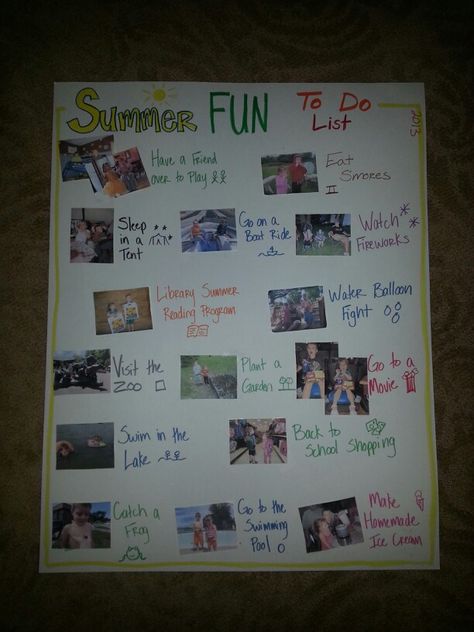 Summer FUN To Do List
2013
Have a Friend
over to Play
Eat
Smores
Sleep
in a
Tent
Go on a
Boat Ride
Watch
Fireworks
Library Summer
Reading Program
Water Balloon
Fight
Visit the
Zoo
Plant a
Garden
Go to a
Movie
Swim in the
Lake
Back to
School Shopping
Catch a
Frog
Go to the
Swimming
Pool
Make
Homemade
Ice Cream